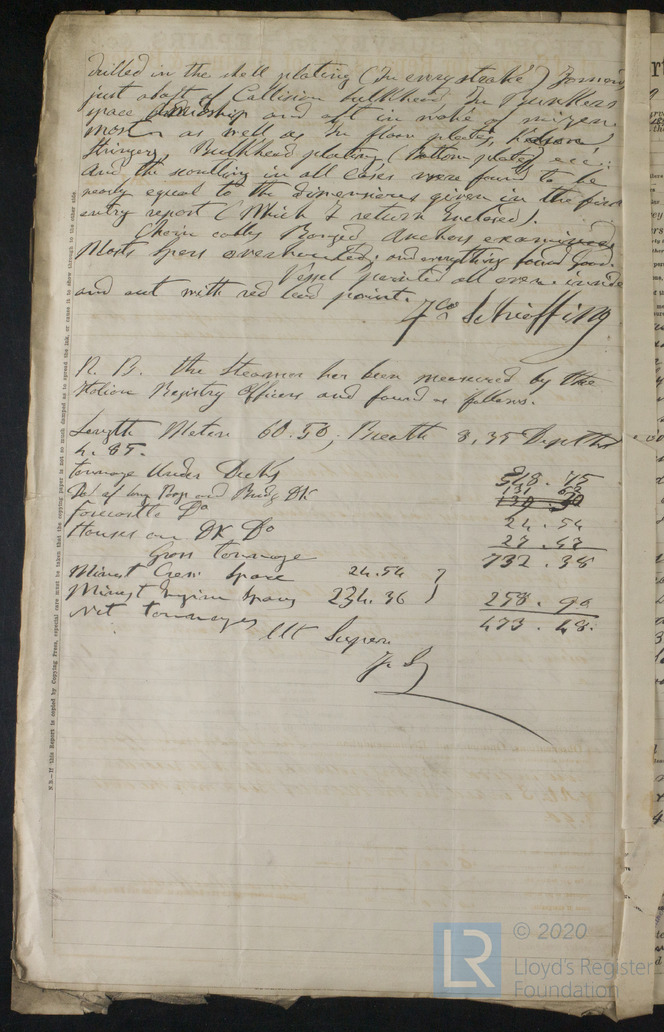 drilled in the shell plating (In every strake) Forward
just abaft of Collision bulkhead, In Bunkers
space and aft in wake of mizen
mast as well as In floor plates, Keelson
Stringers, Bulkhead plating (Bottom plates) ecc:
and the scantling in all cases were found to be
nearly equal to the dimensions given in the first
entry report (Which I return Enclosed).
Chain cables Ranged Anchors examined
Masts Spars overhauled; and everything found good.
Vessel painted all over inside
and out with red lead paint.
Fco Schiaffino
N. B. the Steamer has been measured by the
Italian Registry Officers and found as follows.
Length Meters 60.50, Breath 8,35 Depths
4.85.
tonnage Under Decks 548.75
Do of long Poop and Bridg DK 131
forecastle Do
Houses on DK Do 24.54
27.47
Gross tonnage 732.38
Minus Crew Space 24.54 }
Minus Engine Space 234.36 } 258.90
Net tonnages 473.48.
Ut Supra
F. S.
N.B.—If this Report is copied by Copying Press, especial care must be taken that the copying paper is not so much damped as to spread the Ink, or cause it to show through to the other side.
LR © 2020
Lloyd's Register
Foundation